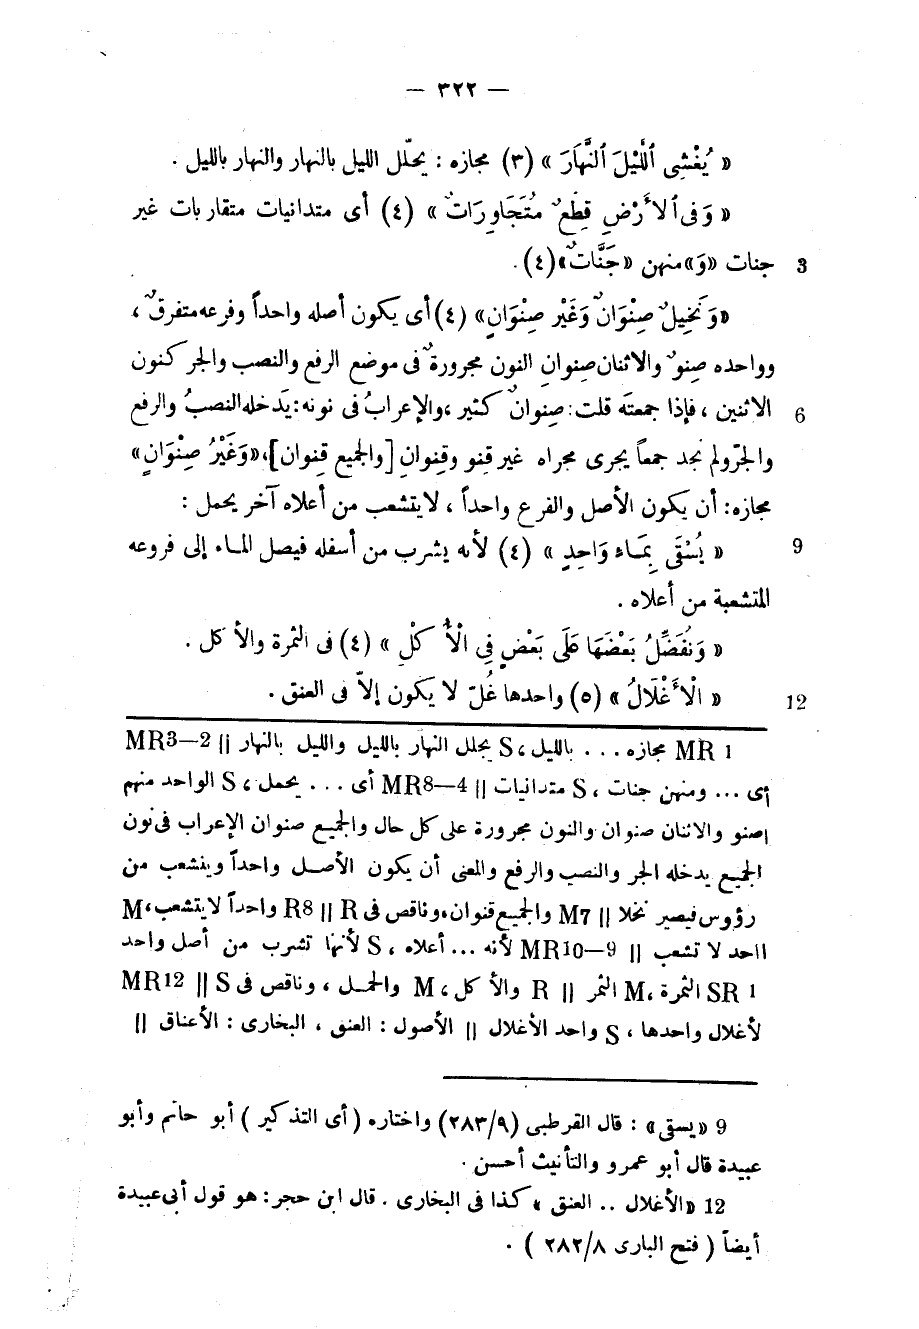 — ٣٢٢ —
« يُغْشِى ٱللَّيْلَ ٱلنَّهَارَ » (٣) مجازه : يجلّل الليل بالنهار والنهار بالليل .
« وَفِى ٱلأَرْضِ قِطَعٌ مُتَجَاوِرَاتٌ » (٤) أى متدانيات متقاربات غير
جنات «وَ»منهن «جَنَّاتٌ»(٤). 3
«وَنَخِيلٌ صِنْوَانٌ وَغَيْر صِنْوَانٍ» (٤) أى يكون أصله واحداً وفرعه متفرقٌ ،
وواحده صِنوٌ والاثنان صِنوانِ النون مجرورةٌ فى موضع الرفع والنصب والجر كنون
الاثنين ، فإذا جمعتَه قلت: صِنوانٌ كثير ،والإعرابُ فى نونه:يَدخله النصبُ والرفع 6
والجرّ ولم نجد جمعاً يجرى مجراه غير قنو وقنوان [والجميع قنوان]،«وَغَيْرُ صِنْوَانٍ»
مجازه: أن يكون الأصل والفرع واحداً ، لا يتشعب من أعلاه آخر يحمل :
« يُسْقَى بِمَاء وَاحِدٍ » (٤) لأنه يشرب من أسفله فيصل الماء إلى فروعه 9
المتشعبة من أعلاه .
« وَنُفَضِّلُ بَعْضَهَا عَلَى بَعْضٍ فِي الْأُكْلِ » (٤) فى الثمرة والأكل .
« الْأَغْلَالُ » (٥) واحدها غُلّ لا يكون إلاّ فى العنق . 12
1 MR مجازه ... بالليل، S يجلل النهار بالليل والليل بالنهار || MR3—2
أى ... ومنهن جنات ، S متدانيات || MR8—4 أى ... يحمل ، S الواحد منهم
صنو والاثنان صنوان والنون مجرورة على كل حال والجميع صنوان الإعراب فى نون
الجميع يدخله الجر والنصب والرفع والمعنى أن يكون الأصل واحداً ويتشعب من
رؤوس فيصير نخلا || M7 والجميع قنوان،وناقص فى R8 || R واحداً لا يتشعب، M
لا تشعب || MR10—9 لأنه ... أعلاه ، S لأنها تشرب من أصل واحد
SR 1 الثمرة ، M الثمر || R والأكل، M والحمل ، وناقص فى MR12 || S
لأغلال واحدها ، S واحد الأغلال || الأصول : العنق ، البخارى : الأعناق ||
9 «يسقى» : قال القرطبى (٢٨٣/٩) واختاره ( أى التذكير ) أبو حاتم وأبو
عبيدة قال أبو عمرو والتأنيث أحسن .
12 «الأغلال .. العنق » كذا فى البخارى . قال ابن حجر: هو قول أبى عبيدة
أيضاً ( فتح البارى ٢٨٢/٨ ) .